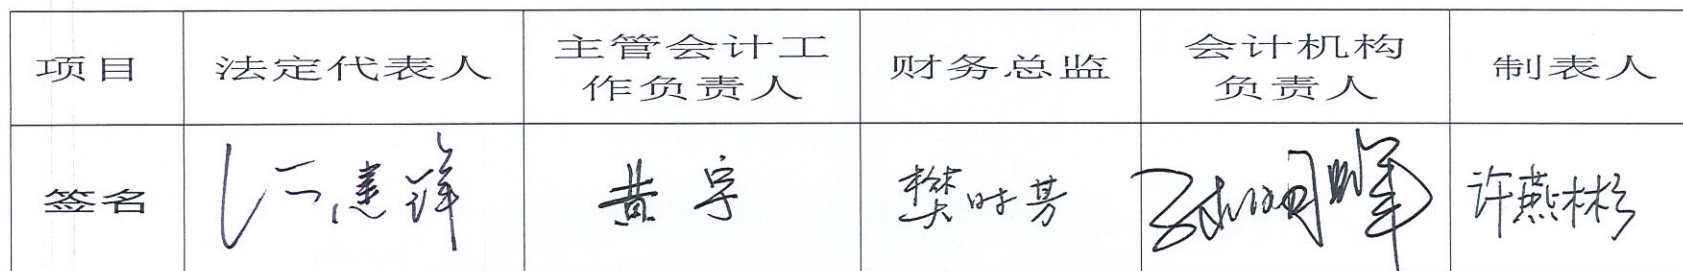 项目 法定代表人 主管会计工作负责人 财务总监 会计机构负责人 制表人
签名 黄宇 樊时芳 孙明辉 许燕彬